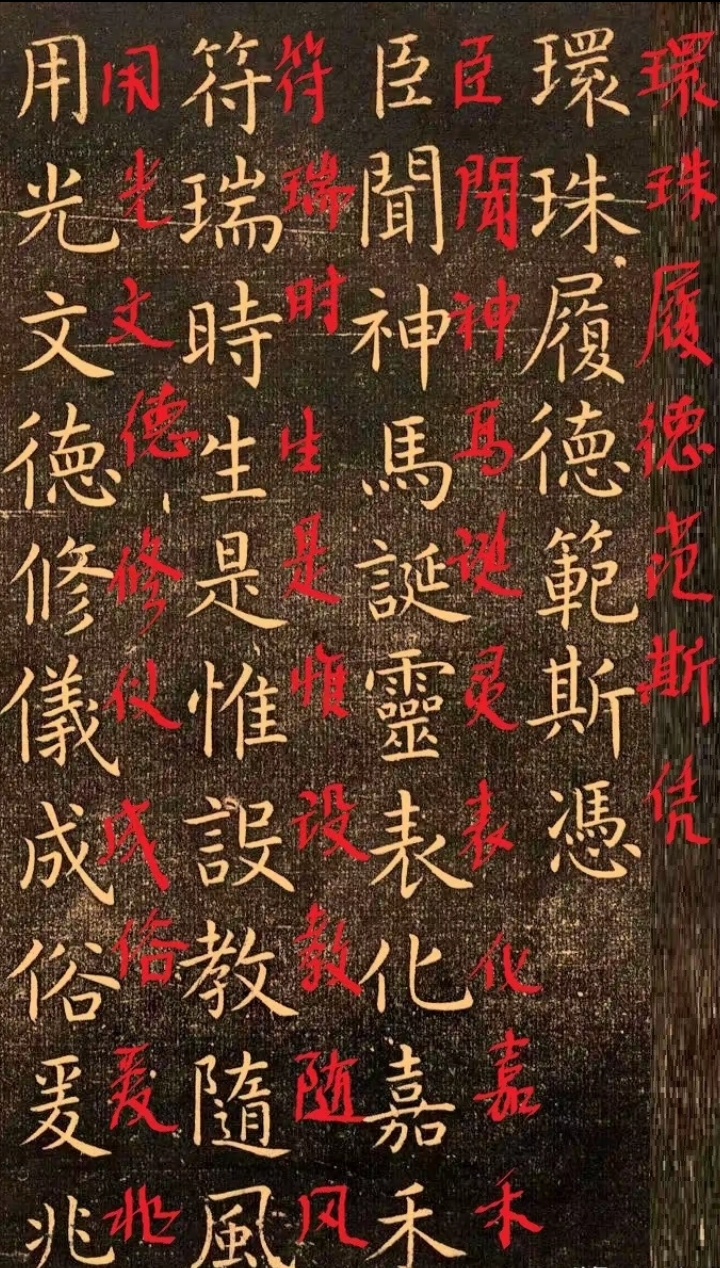 環珠履德范斯凭
環珠履德範斯憑
臣聞神马诞灵表化嘉禾
臣聞神馬誕靈表化嘉禾
符瑞时生是惟设教随风
符瑞時生是惟設教隨風
用光文德修仪成俗爰兆
用光文德修儀成俗爰兆